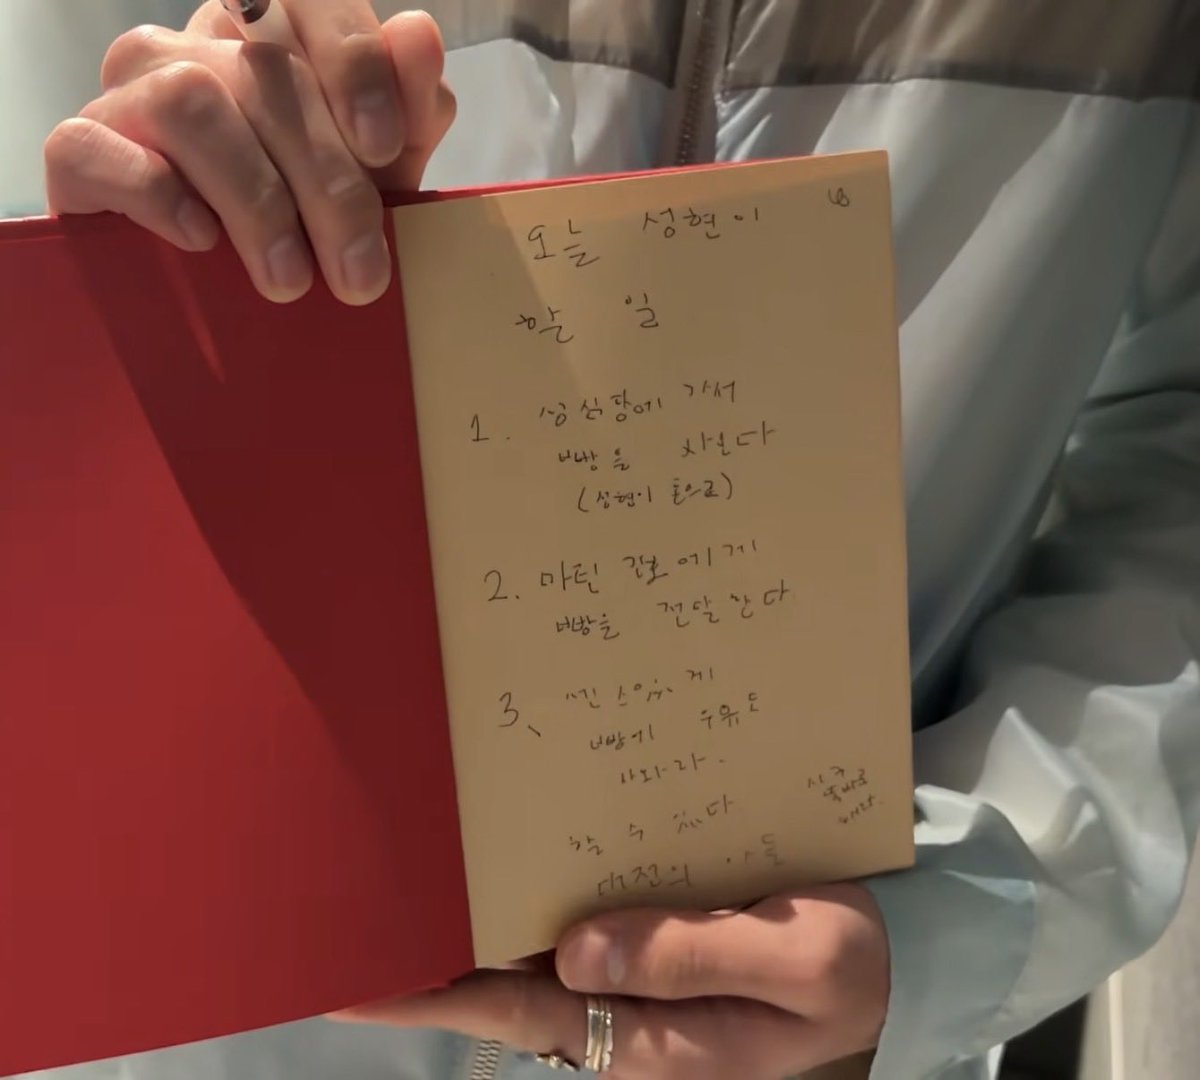 오늘 성현이
할 일
1. 성심당에 가서
빵을 사온다
(성현이 돈으로)
2. 마틴 건호에게
빵을 전달한다
3. 센스있게
빵에 우유도
사와라.
할 수 있다
대전의 아들
똑바로
해라.